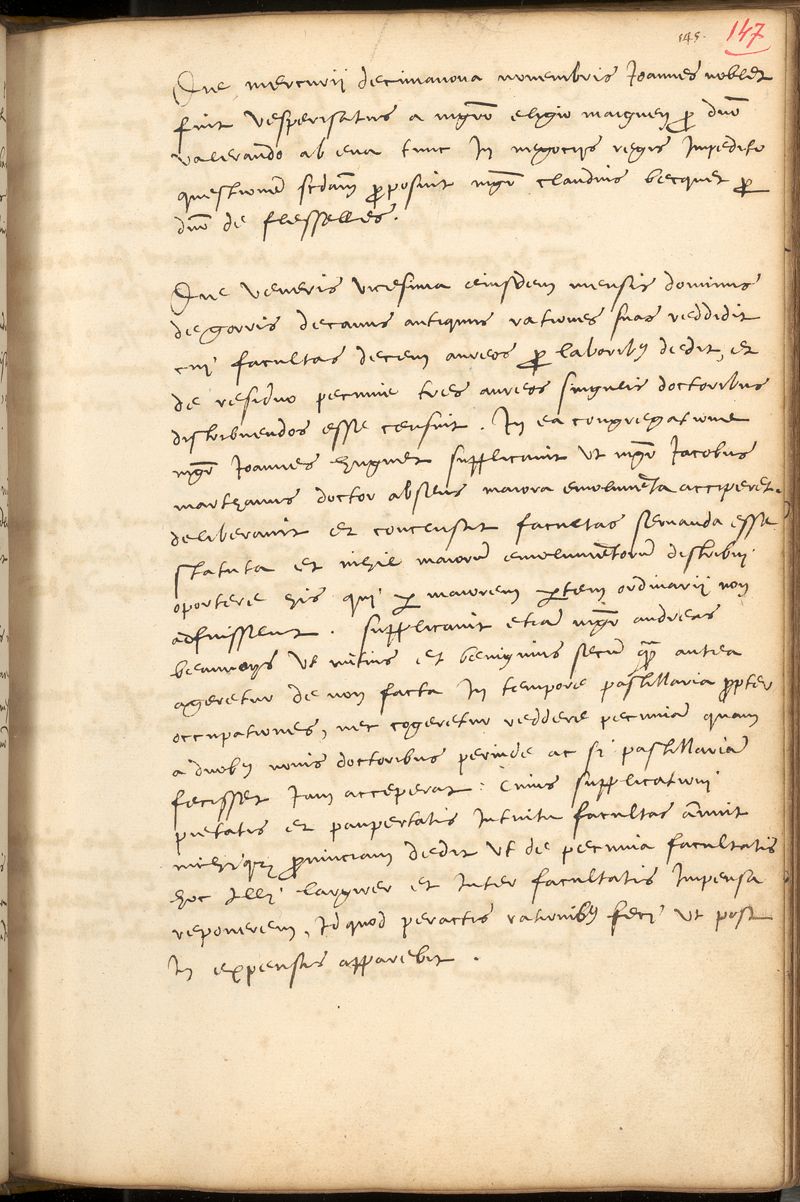 145. 147
Die mercurii decimanova novembris Joannes noblet
fuit vesperisatus a mgro eligio maignen p dno
valerando ab eva tunc In negocijs regis Impedito
questionē scdam pposuit mgr claudius becquet p
dno de flesselles.
Die veneris vicesima eiusdem mensis dominus
degorris decanus antiquus rationes suas reddidit
cui facultas decem aureos p laborib9 dedit, et
de residuo pecunie tres aureos singulis doctoribus
distribuendos esse censuit. In ea congregatione
mgr Joannes huguet supplicavit ut mgr Jacobus
marthanus doctor absens maiora emolumēta acciperet.
deliberavit et concensit facultas servanda esse
statuta et nihil maiorū emolumētorū distribui
oportere his qui p maiorem ptem ordinarii non
adfuissent. supplicavit etiā mgr andreas
beauvoys ut mitius et benignius secū quā antea
ageretur de non facta In tempore pastillaria ppter
occupationes, nec cogeretur reddere pecuniā quam
a duob9 novis doctoribus perinde ac si pastillariā
fecisset Iam acceperat: Cuius supplicationi
pietatis et paupertatis Intuitu facultas āmuit
mihiq3 provinciam dedit ut de pecunia facultatis
hoc Illi largirer et Inter facultatis Impensa
reponerem, Id quod peractis rationib9 feci ut post
In expensis apparebit.